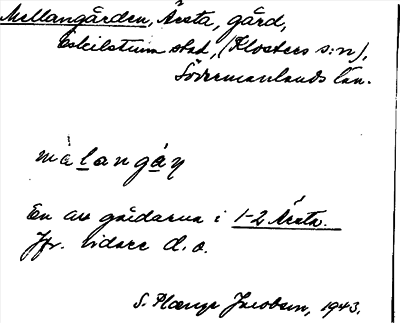 Mellangården, Årsta, gård,
Eskilstuna stad, (Klosters s:n),
Södermanlands län.
målangá̱ṇ
En av gårdarna i 1-2 Årsta.
Jfr. vidare d.o.
S. Jacobsen, 1943.